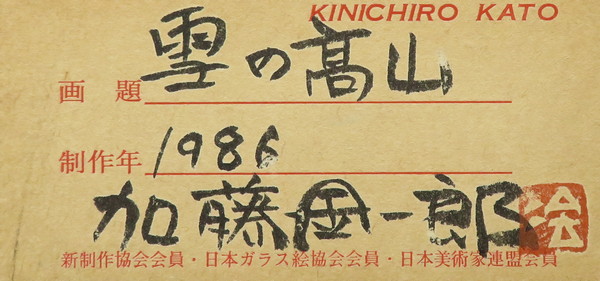 KINICHIRO KATO
画題 雪の髙山
制作年 1986
加藤金一郎 絵
新制作協会会員・日本ガラス絵協会会員・日本美術家連盟会員